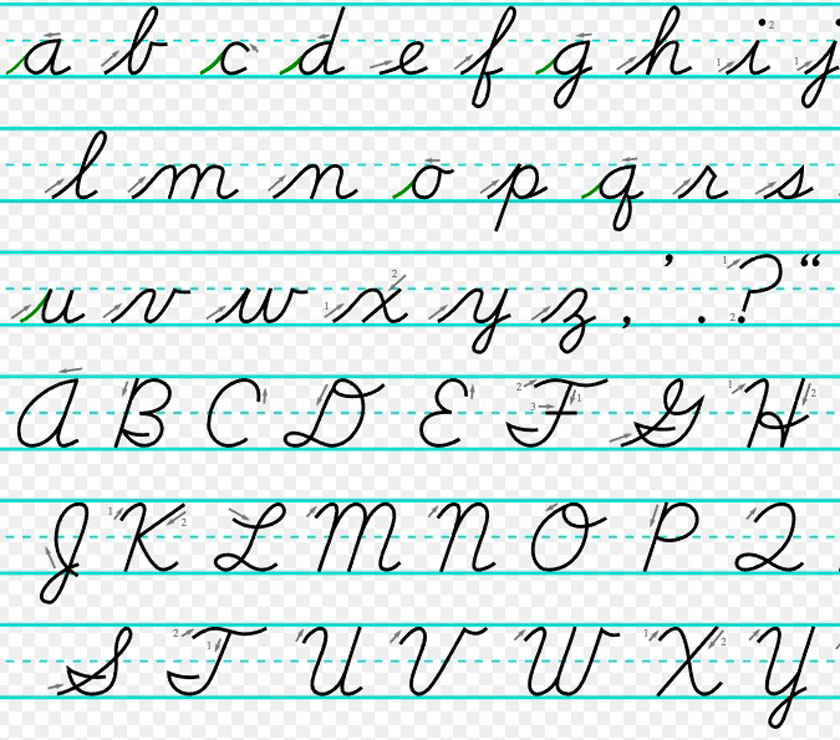 a b c d e f g h i j
l m n o p q r s
u v w x y z , ’ . ? “
A B C D E F G H
J K L M N O P Q
S T U V W X Y